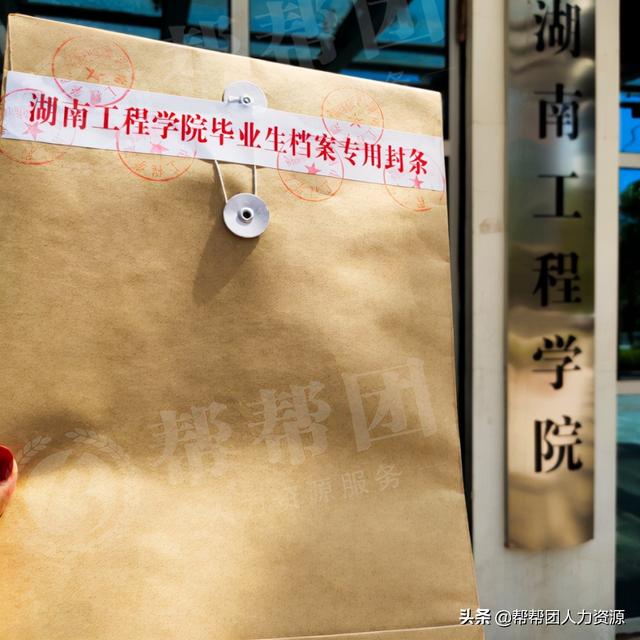 湖南工程学院毕业生档案专用封条
湖南工程学院
帮帮团
帮帮团
资源服务
头条 @帮帮团人力资源